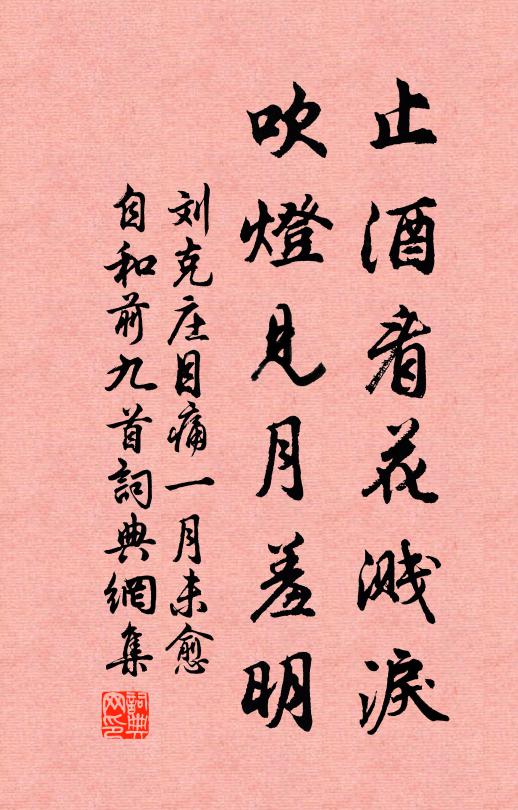 止酒看花溅淚
吹燈见月羞明
刘克庄目痛一月未愈
自和前九首詞典網集
詞典网印